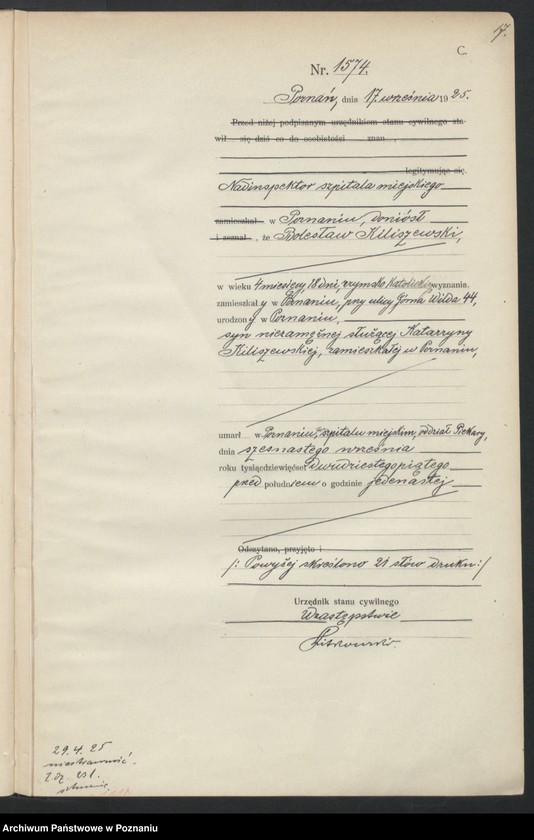 17.
C.
Nr. 1574.
Poznań, dnia 17. września 1925.
Przed niżej podpisanym urzędnikiem stanu cywilnego sta-
wił się dziś co do osobistości znan ,
legitymując się
Nadinspektor szpitala miejskiego
zamieszkał w Poznaniu, doniósł
i zeznał , że Bolesław Kiliszewski,
w wieku 4 miesięcy, 18 dni, rzymsko katolickiego wyznania.
zamieszkały w Poznaniu, przy ulicy Górna Wilda 44,
urodzony w Poznaniu,
syn niezamężnej służącej Katarzyny
Kiliszewskiej, zamieszkałej w Poznaniu,
umarł w Poznaniu, w szpitalu miejskim, oddział Piekary,
dnia szesnastego września
roku tysiącdziewięćset dwudziestegopiątego
przed południem o godzinie jedenastej
Odczytano, przyjęto i
/: Powyżej skreślono 21 słów druku :/
Urzędnik stanu cywilnego
W zastępstwie
29.4.25
Archiwum Państwowe w Poznaniu